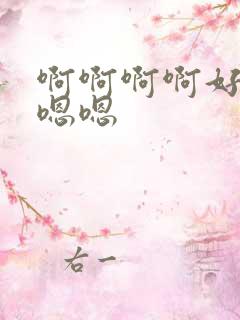 啊啊啊啊好
嗯嗯
右一